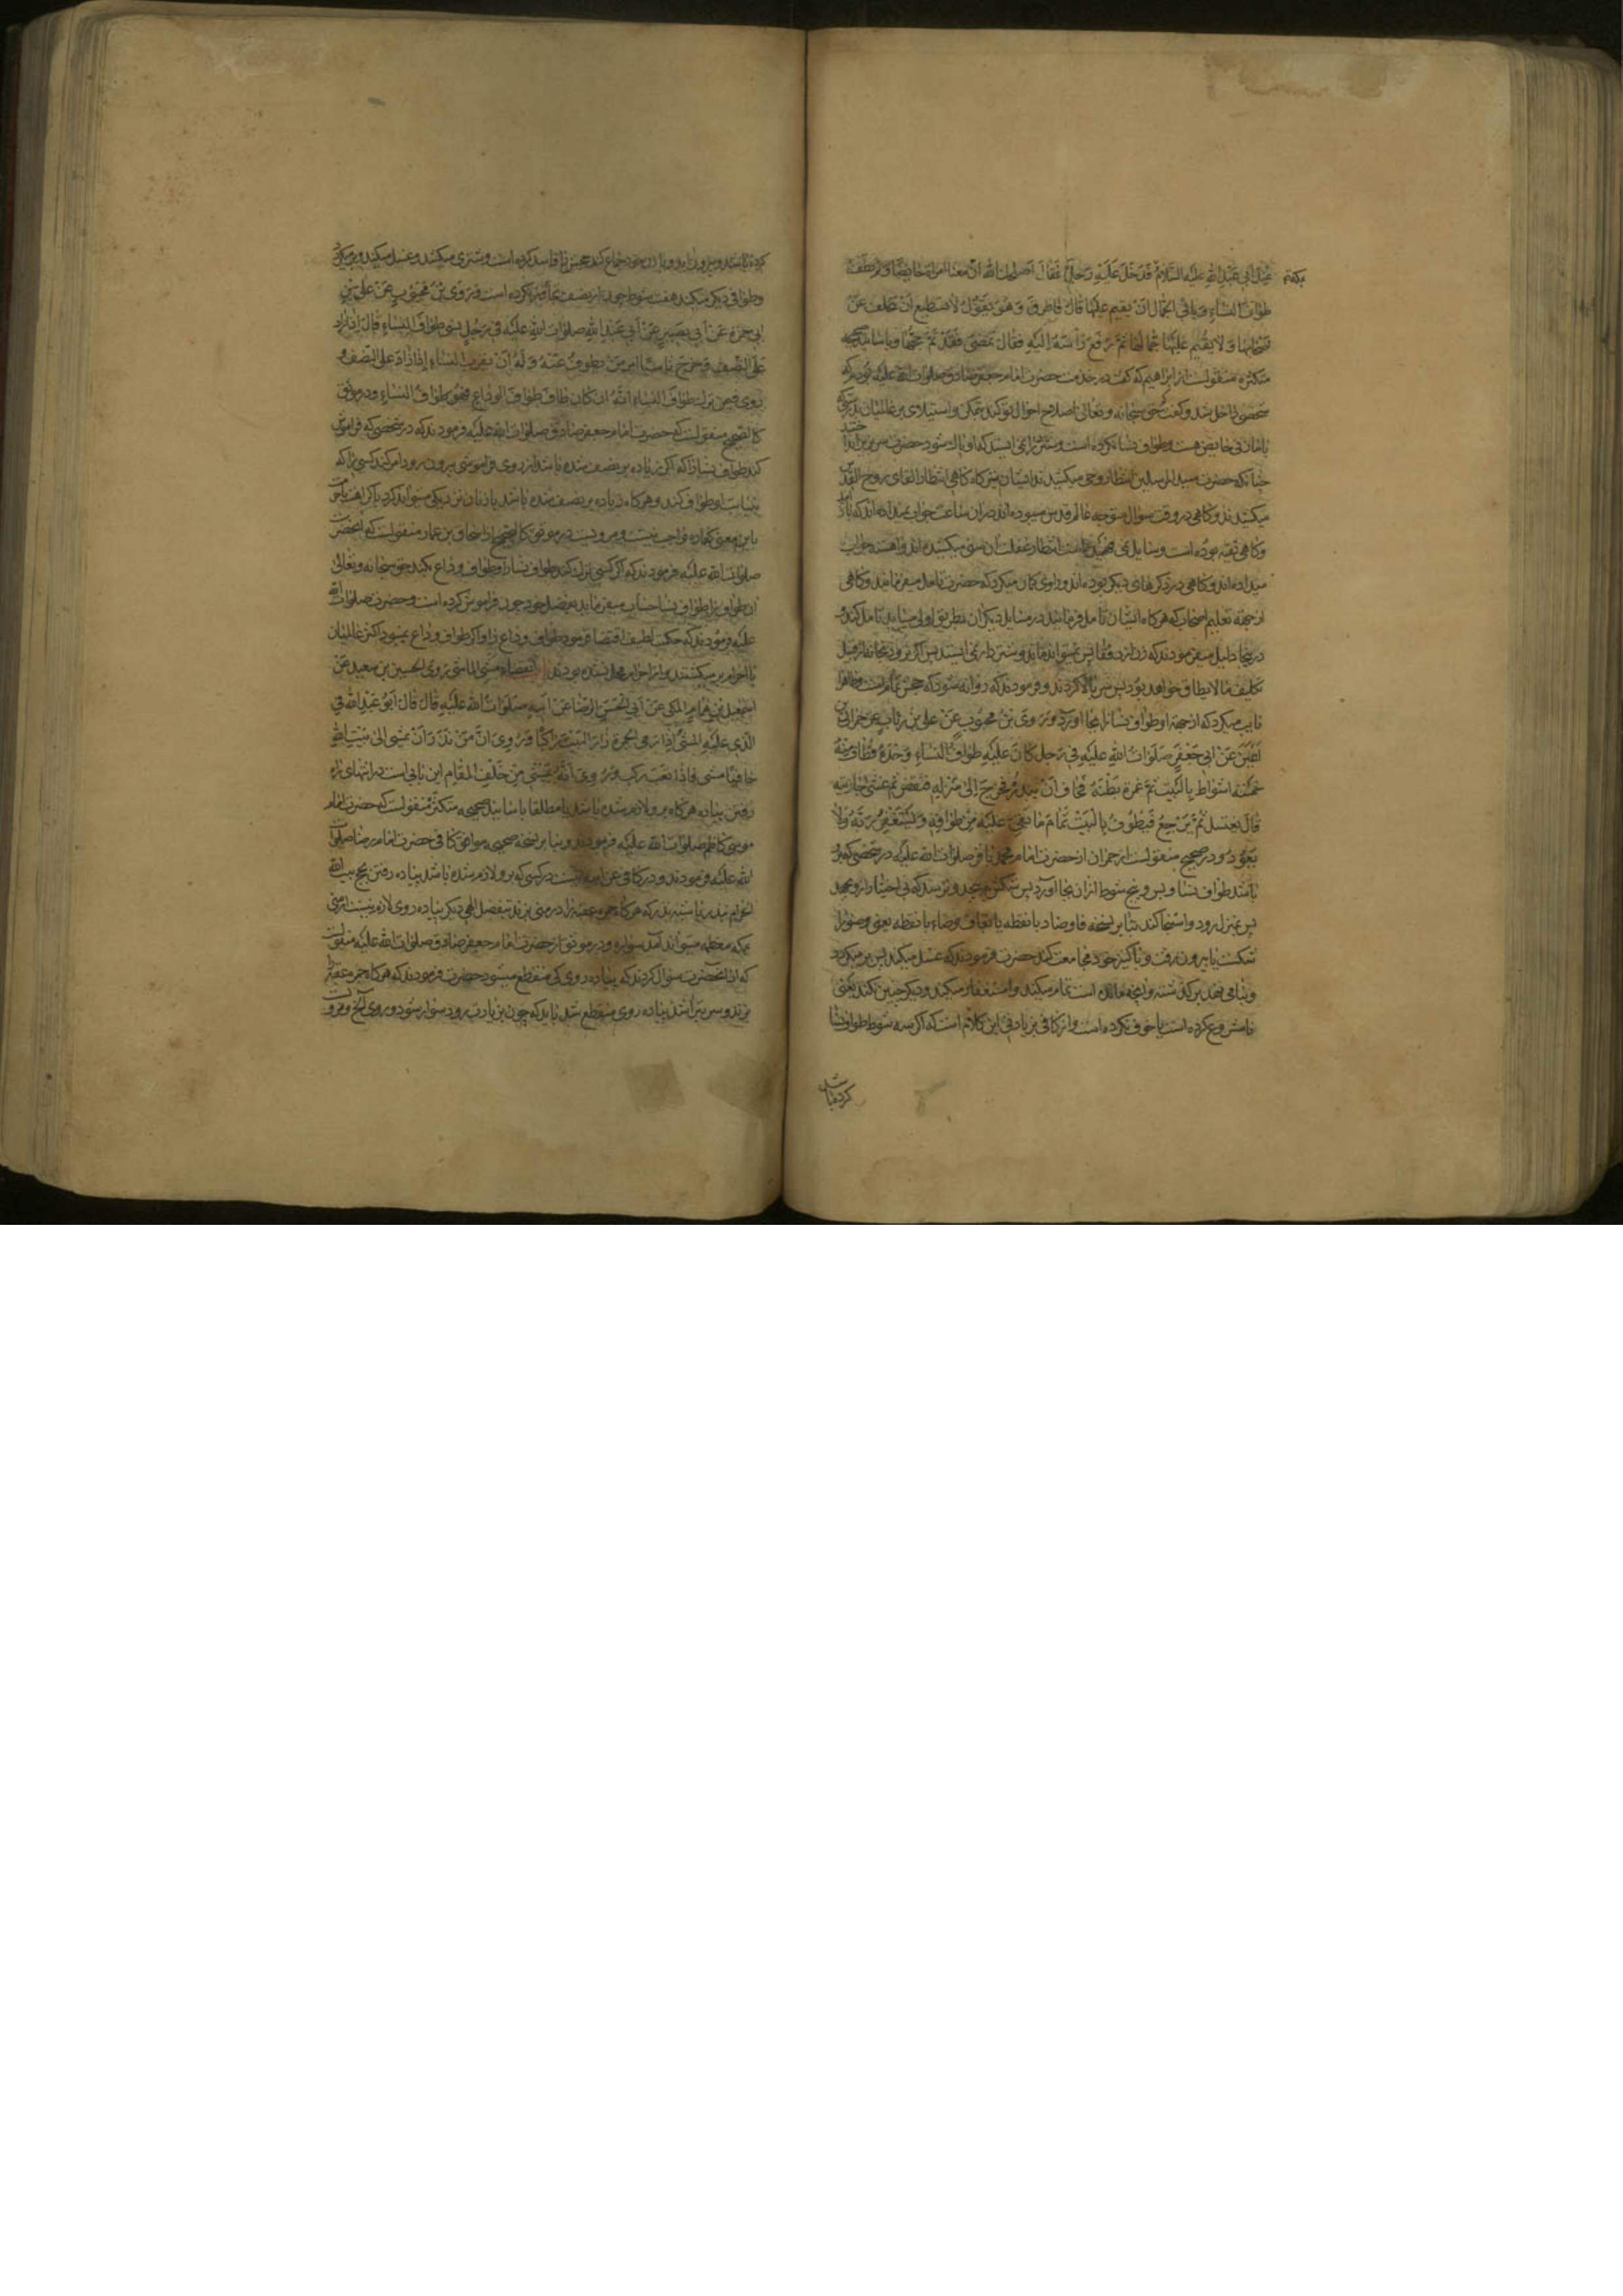 عند ابی عبد الله علیه السلام فدخل علیه رجل فقال اصلحك الله ان معنا امراة حائضا و لم تطف
بمکه
طواف النساء و یابی الجمال ان یقیم علیها قال فاطرق و هو یقول لا تستطیع ان تتخلف عن
اصحابها و لا یقیم علیها جمالها ثم رفع راسه الیه فقال تمضی فقد تم حجها و باسانید صحیحه
متکثره منقولست از ابراهیم که گفت در خدمت حضرت امام جعفر صادق صلوات الله علیه بودم که
شخصی داخل شد و گفت حق سبحانه و تعالی اصلاح احوال تو کند بتمکن و استیلای بر عالمیان بدرستی که
با ما زنی حایض هست و طواف نسا نکرده است و شتردار نمی ایستد که او پاک شود حضرت سر بزیر انداختند
چنانکه حضرت سید المرسلین انتظار وحی میکشیدند ایشان نیز گاه گاهی انتظار القای روح القدس
میکشیدند و گاهی در وقت سوال متوجه عالم قدس میبوده اند در ان ساعت جواب نمیداده اند که
و گاهی تقیه بوده است و سایل نمی فهمیده است انتظار غفلت ان سنی میکشیده اند و اهسته جواب
میداده اند و گاهی در ذکرهای دیگر بوده اند و راوی گمان میکرد که حضرت تامل میفرمایند و گاهی
از جهة تعلیم اصحاب که هرگاه ایشان تامل فرمایند در مسایل دیگران بطریق اولی میباید تامل کنند و
در اینجا دلیل میفرمودند که زن از رفقا پس نمیتواند ماند و شتردار نمی ایستد پس اگر نرود بمحال از قبیل
تکلیف ما لا یطاق خواهد بود پس سر بالا کردند و فرمودند که روانه شود که حجش تمام است و ظاهرا
نایب میگیرد که از جهة او طواف نسا را بجا آورد و روی بن محبوب عن علی بن رئاب عن حمران بن
اعین عن ابی جعفر صلوات الله علیه فی رجل کان علیه طواف النساء وحده فطاف منه
خمسة اشواط بالبیت ثم غمزه بطنه فخاف ان یبدره فخرج الی منزله فنفض ثم غشی جاریته
قال یغتسل ثم یرجع فیطوف بالبیت تمام ما بقی علیه من طوافه و یستغفر ربه و لا
یعود و در صحیح منقولست از حمران از حضرت امام محمد باقر صلوات الله علیه در شخصی که برو
باشد طواف نسا و بس و پنج شوط از ان بجا آورد پس شکمش بپیچد و ترسد که بی اختیار ازو بجهد
پس بمنزل رود و استنجا کند بنا بر نسخه فا و ضاد با نقطه یا بقاف و ضاد با نقطه یعنی وضو را
شکست یا بیرون رفت و با کنیز خود مجامعت کند حضرت فرمودند که غسل میکند پس بر میگردد
و بنا می نهد بر گذشته و آنچه مانده است تمام میکند و استغفار میکند و دیگر چنین نکند یعنی
نامشروع کرده است یا خوف نکرده است و از کافی زیادتی این کلام است که اگر سه شوط طواف نسا
کرده باشد
کرده باشد و بیرون آید و با زن خود جماع کند حجش را فاسد کرده است و شتری میکشد و غسل میکند و بر میگردد
و طوافی دیگر میکند هفت شوط چون از نصف تجاوز نکرده است و روی بن محبوب عن علی بن
ابی حمزه عن ابی بصیر عن ابی عبد الله صلوات الله علیه فی رجل نسی طواف النساء قال اذا زاد
علی النصف و خرج ناسیا امر من یطوف عنه و له ان یقرب النساء اذا زاد علی النصف و
روی فیمن ترک طواف النساء انه ان کان طاف طواف الوداع فهو طواف النساء و در موثق
کالصحیح منقولست که حضرت امام جعفر صادق صلوات الله علیه فرمودند که در شخصی که فراموش
کند طواف نسا را که اگر زیاده بر نصف شده باشد از روی فراموشی بیرون رود امر کند کسی را که
بنیابت او طواف کند و هرگاه زیاده بر نصف شده باشد با زنان نزدیکی میتواند کرد با کراهت یا حرمت
باین معنی کفاره واجب نیست و مرویست در موثق کالصحیح از اسحاق بن عمار منقولست که آنحضرت
صلوات الله علیه فرمودند که اگر کسی ترک کند طواف نسا را و طواف وداع بکند حق سبحانه و تعالی
ان طواف را طواف نسا حساب میفرماید بفضل خود چون فراموش کرده است و حضرت صلوات الله
علیه فرمودند که حکمت لطیف اقتضا فرمود طواف وداع را و اگر طواف وداع نمیبود اکثر عالمیان
با احرام بر میگشتند و از احرام محل نشده بودند باب انقضاء مشی الماشی روی الحسین بن سعید عن
اسمعیل بن همام المکی عن ابی الحسن الرضا عن ابیه صلوات الله علیه قال قال ابو عبد الله فی
الذی علیه المشی اذا رمی الجمرة زار البیت راکبا و روی ان من نذر ان یمشی الی بیت الله
حافیا مشی فاذا تعب رکب و روی انه یمشی من خلف المقام این بابی است در انتهای راه
رفتن پیاده هرگاه برو لازم شده باشد یا مطلقا باسانید صحیحه متکثره منقولست که حضرت امام
موسی کاظم صلوات الله علیه فرمودند و بنا بر نسخه صحیحه موافق کافی حضرت امام رضا صلوات
الله علیه فرمودند و در کافی عن ابیه نیست در کسی که برو لازم شده باشد پیاده رفتن بحج بیت الله
الحرام بنذر یا شبه نذر که هرگاه جمره عقبه را در منی بزند بتفضل الهی دیگر پیاده روی لازم نیست از منی
بمکه معظمه میتواند آمد سواره و در موثق از حضرت امام جعفر صادق صلوات الله علیه منقولست
که از آنحضرت سوال کردند که پیاده روی کی منقطع میشود حضرت فرمودند که هرگاه جمره عقبه را
بزند و سر بتراشد پیاده روی منقطع شد باید که چون بزیارت رود سوار شود و روی